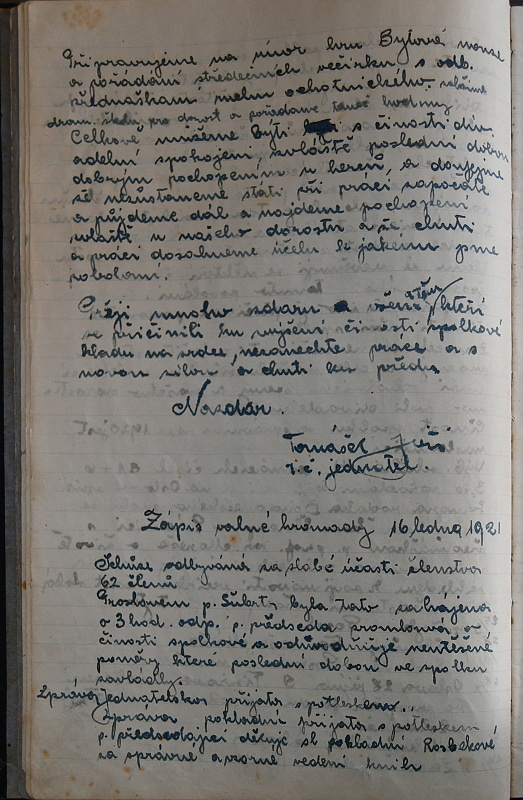 Připravujeme na únor hru Bylová
a pořádání středečních večírků s odb.
přednáškami mělm ochotnického.
dram. školu pro dorost a pořádané taneč hodiny
Celkově můžeme býti s činností div.
adelní spokojeni, zvláště poslední dobou
dobrým pochopením u herců, a doufejme
že nezůstaneme státi při práci započaté
a půjdeme dál a najdeme pochopení
u našeho dorostu a že chutí
a prací dosáhneme účelu k jakému jsme
povoláni.
Přeji mnoho zdaru a všem těm kteří
se přičinili ku zvýšení činnosti spolkové
kladu na srdce, nezanechte práce a s
novou silou a chutí ku předu
Nazdar.
Tomášek
t.č. jednatel.
Zápis valné hromady 16 ledna 1921
Schůze odbývána za slabé účasti členstva
62 členů
Proslovem p. Šuberta byla tato zahájena
o 3 hod. odp. p. předseda promlouvá o
činosti spolkové a odůvodňuje netěšené
poměry které poslední dobou ve spolku
zavládly.
Zpráva jednatelská přijata s potleskem.
Zpráva pokladní přijata s potleskem
p. předsedající děkuje sl. pokladní Rosbekové
za správné a vzorné vedení knih